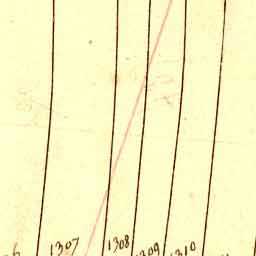 1307 1308 1309 1310